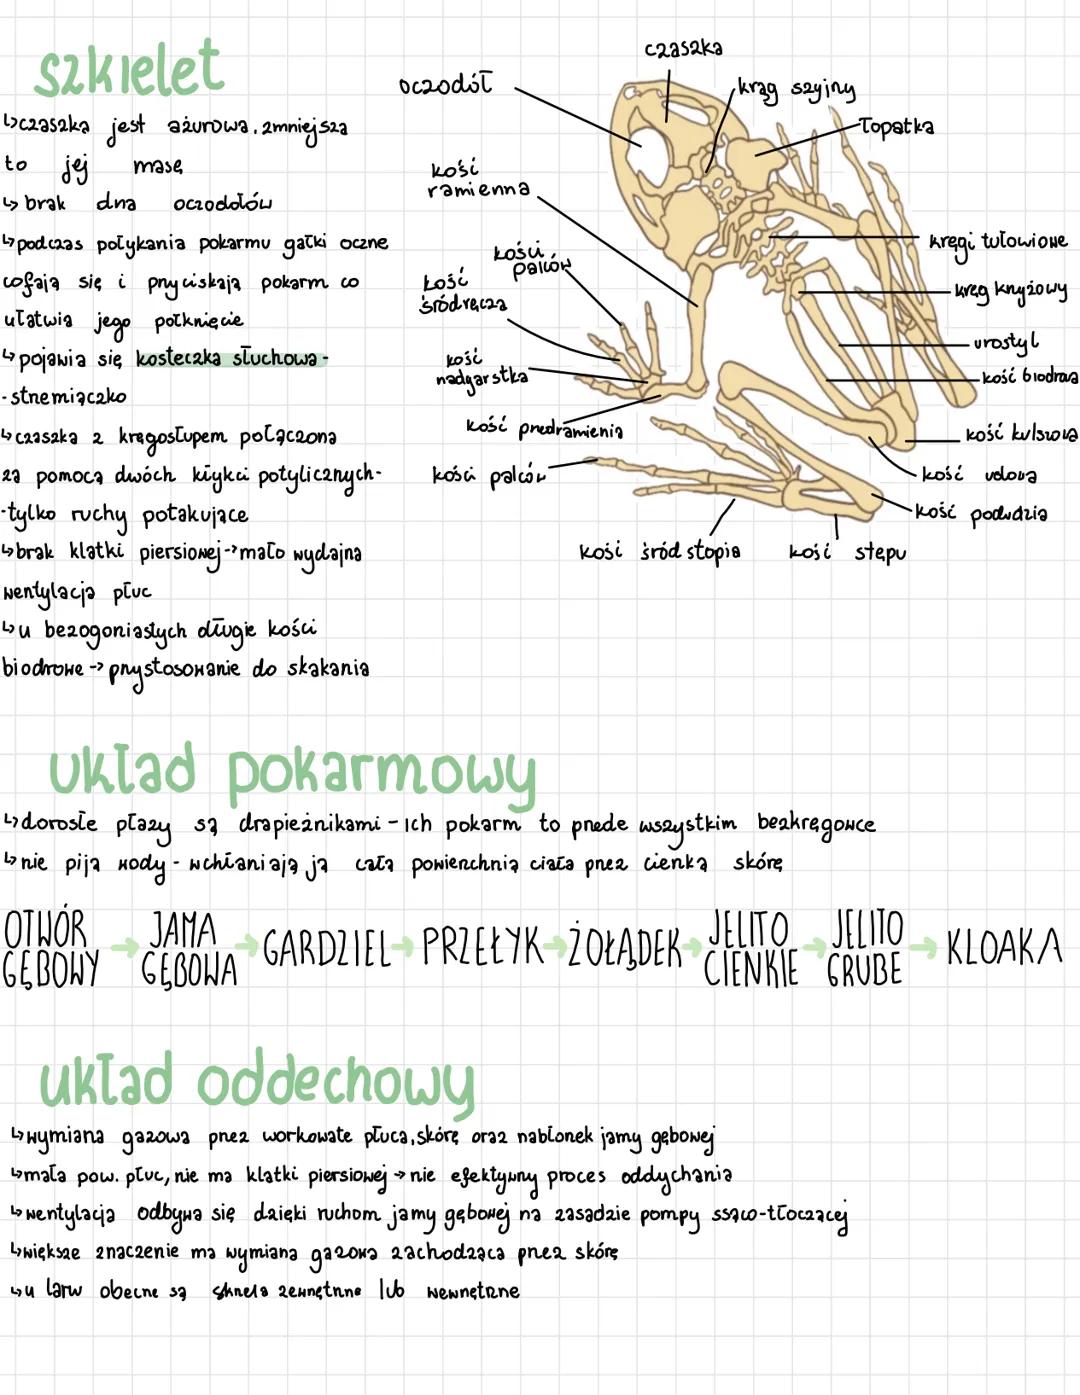 szkielet
↳czaszka jest ażurowa, zmniejsza
to jej masę
↳brak dna oczodołów
↳podczas połykania pokarmu gałki oczne
cofają się i przyciskają pokarm co
ułatwia jego połknięcie
↳pojawia się kosteczka słuchowa-
-strzemiączko
↳czaszka z kręgosłupem połączona
za pomocą dwóch kłykci potylicznych-
-tylko ruchy potakujące
↳brak klatki piersiowej->mało wydajna
wentylacja płuc
↳u bezogoniastych długie kości
biodrowe -> przystosowanie do skakania
czaszka
oczodół
kręg szyjny
łopatka
kość
ramienna
kości
palców
kość
śródręcza
kość
nadgarstka
kość przedramienia
kości palców
kręgi tułowiowe
kręg krzyżowy
urostyl
kość biodrowa
kość kulszowa
kość udowa
kość podudzia
kość śródstopia
kość stępu
układ pokarmowy
↳dorosłe płazy są drapieżnikami - ich pokarm to przede wszystkim bezkręgowce
↳nie piją wody - wchłaniają ją całą powierzchnią ciała przez cienką skórę
OTWÓR
GĘBOWY
→ JAMA
GĘBOWA
→ GARDZIEL → PRZEŁYK → ŻOŁĄDEK → JELITO
CIENKIE
→ JELITO
GRUBE
→ KLOAKA
układ oddechowy
↳wymiana gazowa przez workowate płuca, skórę oraz nabłonek jamy gębowej
↳mała pow. płuc, nie ma klatki piersiowej -> nie efektywny proces oddychania
↳wentylacja odbywa się dzięki ruchom jamy gębowej na zasadzie pompy ssąco-tłoczącej
↳większe znaczenie ma wymiana gazowa zachodząca przez skórę
↳u larw obecne są skrzela zewnętrzne lub wewnętrzne